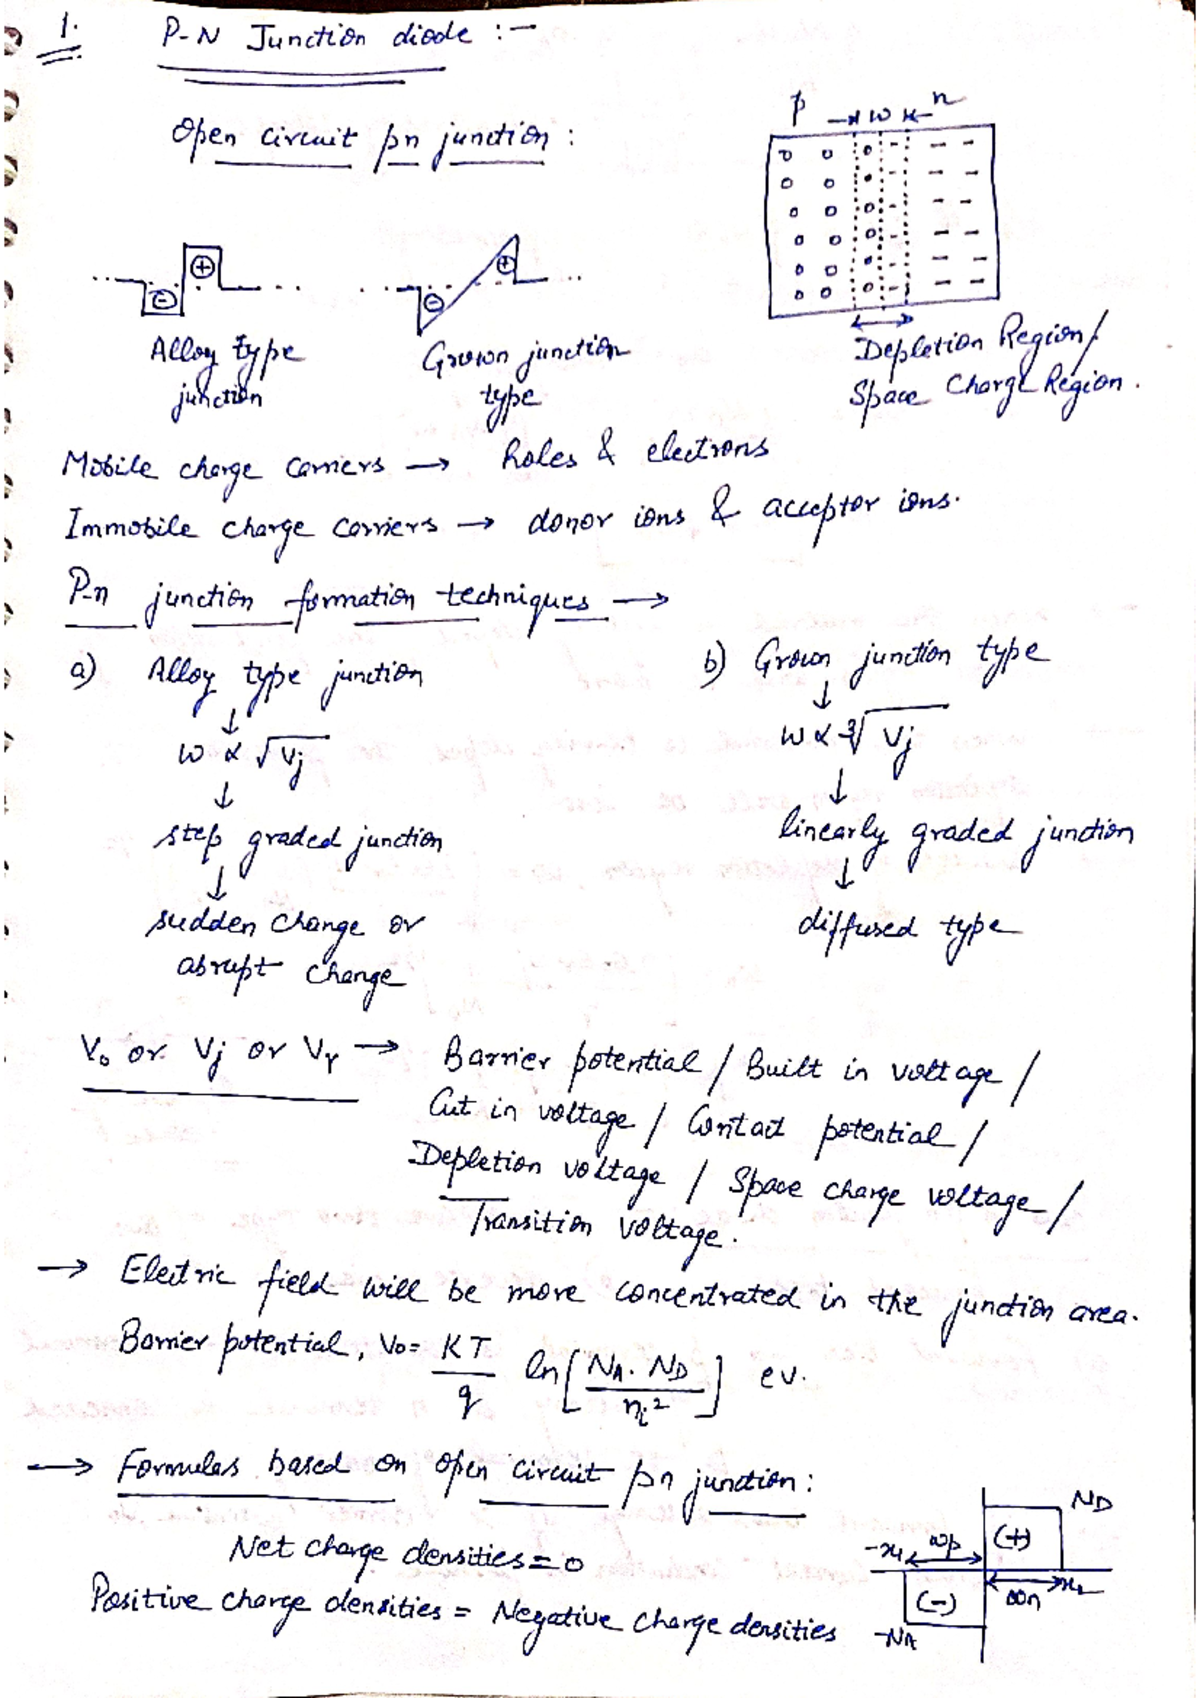 1. P-N Junction diode :-
Open circuit pn junction :
p w n
Alloy type
junction
Grown junction
type
Depletion Region/
Space Charge Region.
Mobile charge carriers → holes & electrons
Immobile charge carriers → donor ions & acceptor ions.
P-n junction formation techniques →
a) Alloy type junction
↓
w ∝ √Vj
↓
step graded junction
↓
sudden change or
abrupt change
b) Grown junction type
↓
w ∝ ∛Vj
↓
linearly graded junction
↓
diffused type
V₀ or Vj or Vγ → Barrier potential / Built in voltage /
Cut in voltage / Contact potential /
Depletion voltage / Space charge voltage /
Transition voltage.
→ Electric field will be more concentrated in the junction area.
Barrier potential, V₀ = KT/q ln[NA. ND / ni²] ev.
→ Formulas based on open circuit pn junction :
Net charge densities = 0
Positive charge densities = Negative charge densities
ND
(+)
-x₁ wp
ωn x₂
(-)
-NA